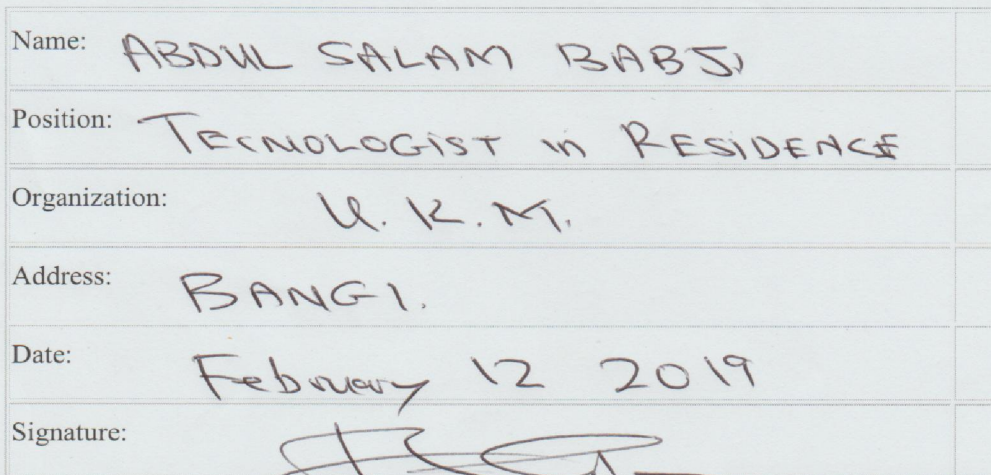 Name: ABDUL SALAM BABJI
Position: TECNOLOGIST in RESIDENCE
Organization: U.K.M.
Address: BANGI.
Date: February 12 2019
Signature: